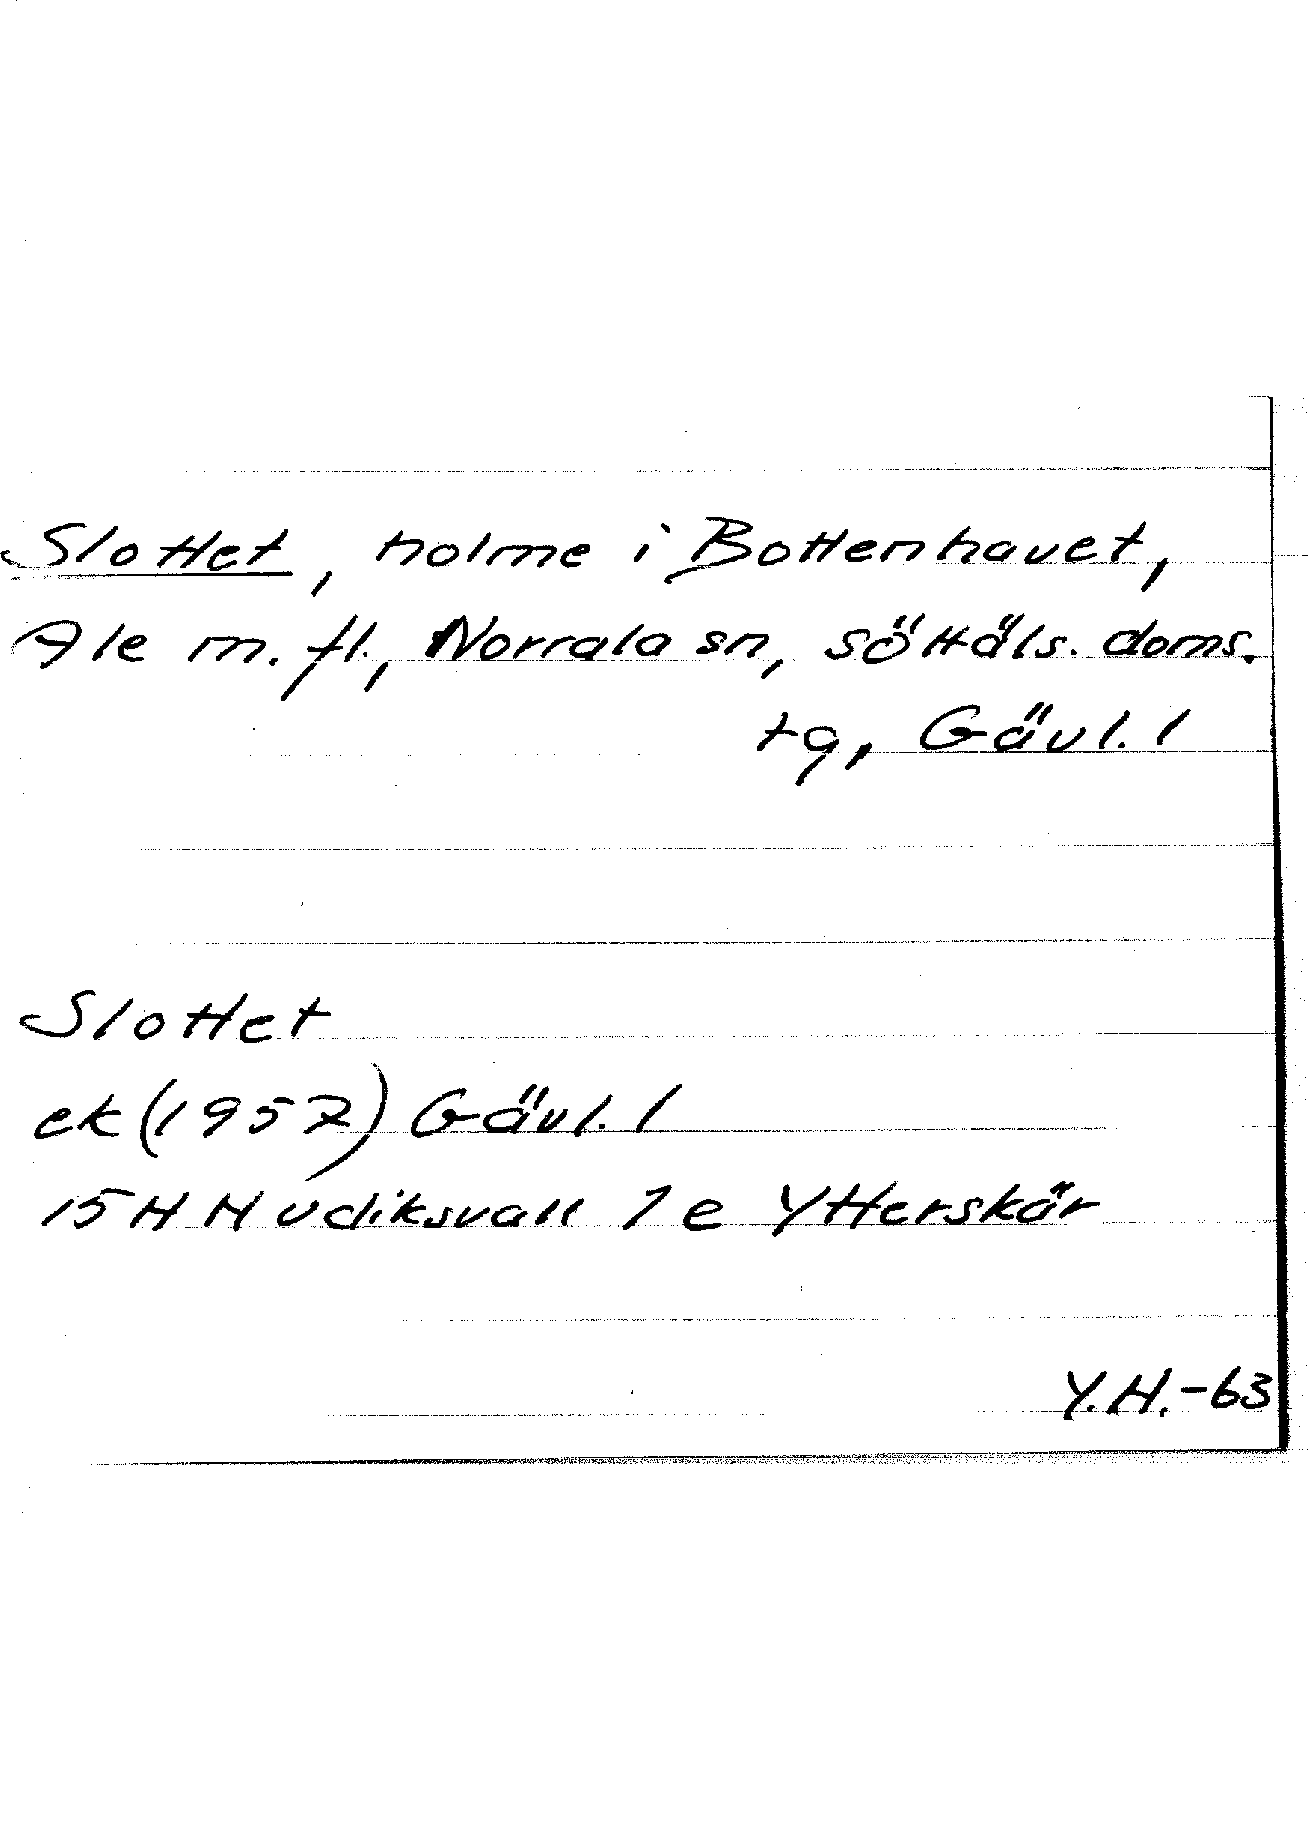 Slottet, holme i Bottenhavet,
Ale m. fl., Norrala sn, söHäls. doms.
tg, Gävl. l
Slottet
ek (1957) Gävl. l
15 H Hudiksvall 7e Ytterskär
Y.H.-63